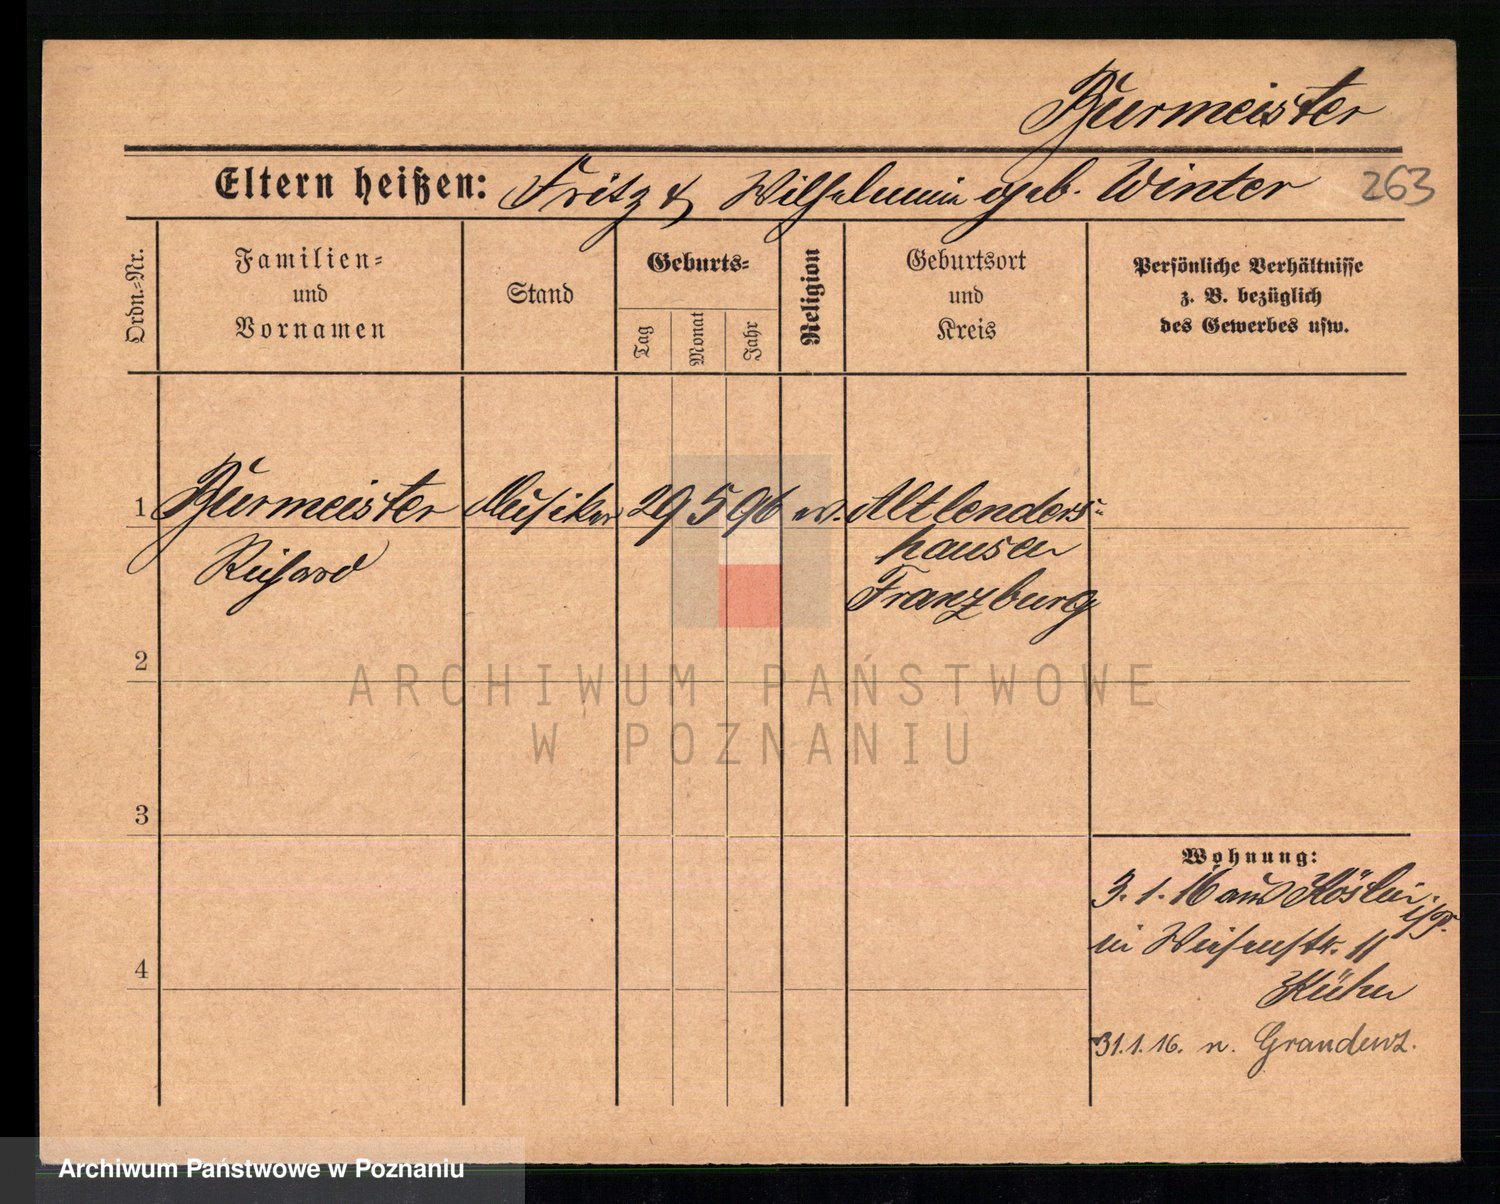 Burmeister
Eltern heißen: Fritz & Wilhelmine geb. Winter 263
Ordn.-Nr.
Familien-
und
Vornamen
Stand
Geburts-
Tag
Monat
Jahr
Religion
Geburtsort
und
Kreis
Persönliche Verhältnisse
z. B. bezüglich
des Gewerbes usw.
1 Burmeister Musiker 29 5 96 ev. Altlenders-
hausen
Richard
Franzburg
2
ARCHIWUM PAŃSTWOWE
W POZNANIU
3
Wohnung:
3.1.16 aus Köslin
i/P.
in Wiesenstr. 11
4
Kühn
31.1.16. n. Graudenz.
Archiwum Państwowe w Poznaniu